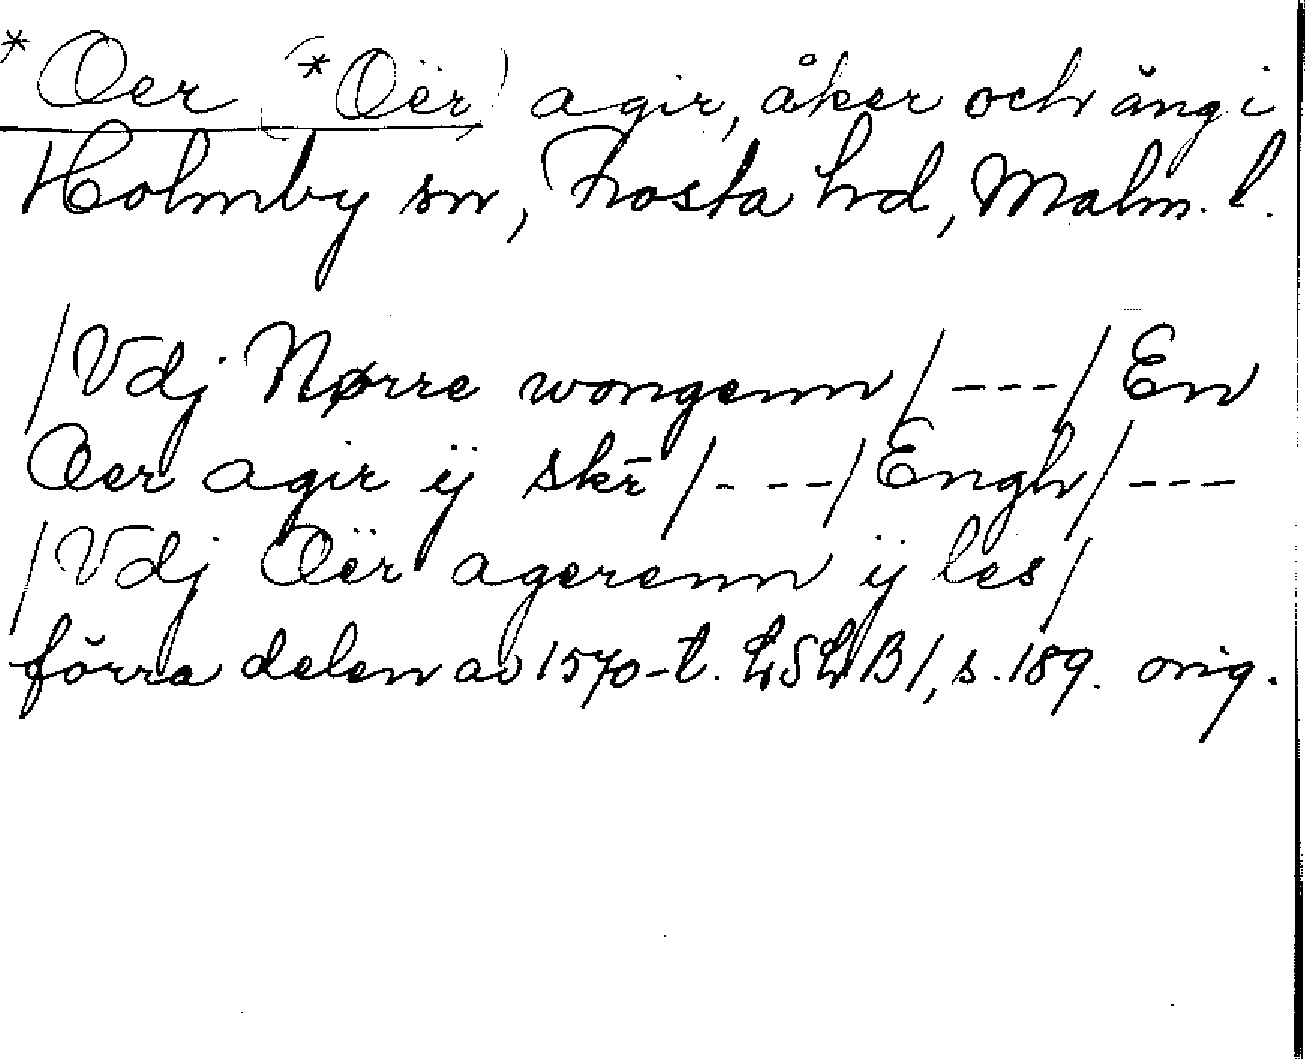 *Oer (*Oër) agir, åker och äng i
Holmby sn, Frosta hd, Malm. l.
/Vdj Nørre wongenn/---/En
Oer agir ÿ skr̄/---/Engh/---
/Vdj Oër agerenn ÿ les/
förra delen av 1570-t. LSLB 1, s. 189. orig.